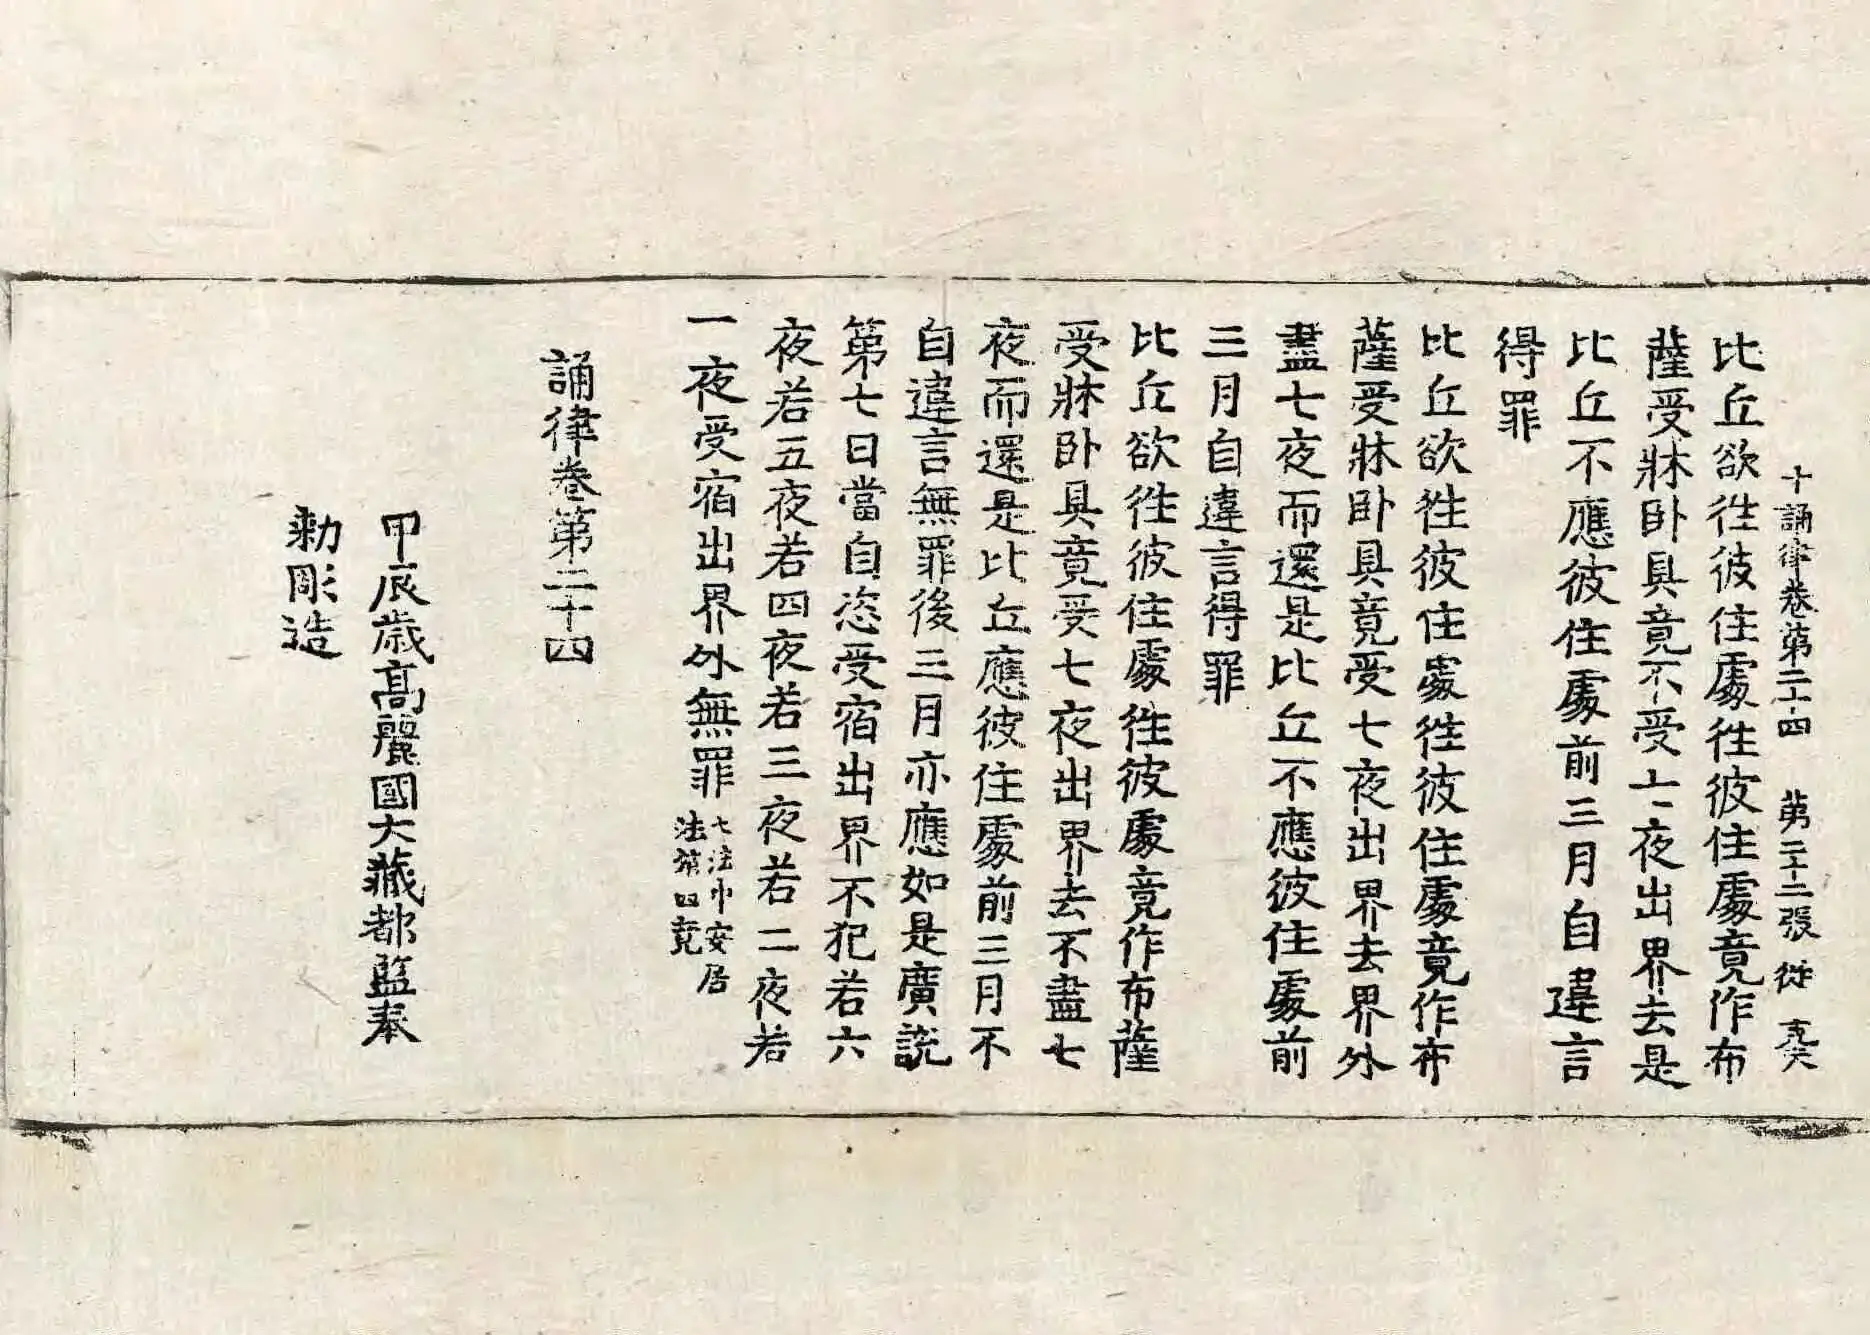 十誦律卷第二十四 第二十二張 從
比丘欲往彼住處往彼住處竟作布
薩受牀卧具竟不受七夜出界去是
比丘不應彼住處前三月自違言
得罪
比丘欲往彼住處往彼住處竟作布
薩受牀卧具竟受七夜出界去界外
盡七夜而還是比丘不應彼住處前
三月自違言得罪
比丘欲往彼住處往彼處竟作布薩
受牀卧具竟受七夜出界去不盡七
夜而還是比丘應彼住處前三月不
自違言無罪後三月亦應如是廣說
第七日當自恣受宿出界不犯若六
夜若五夜若四夜若三夜若二夜若
一夜受宿出界外無罪七法中安居
法第四竟
誦律卷第二十四
甲辰歲高麗國大藏都監奉
勅彫造